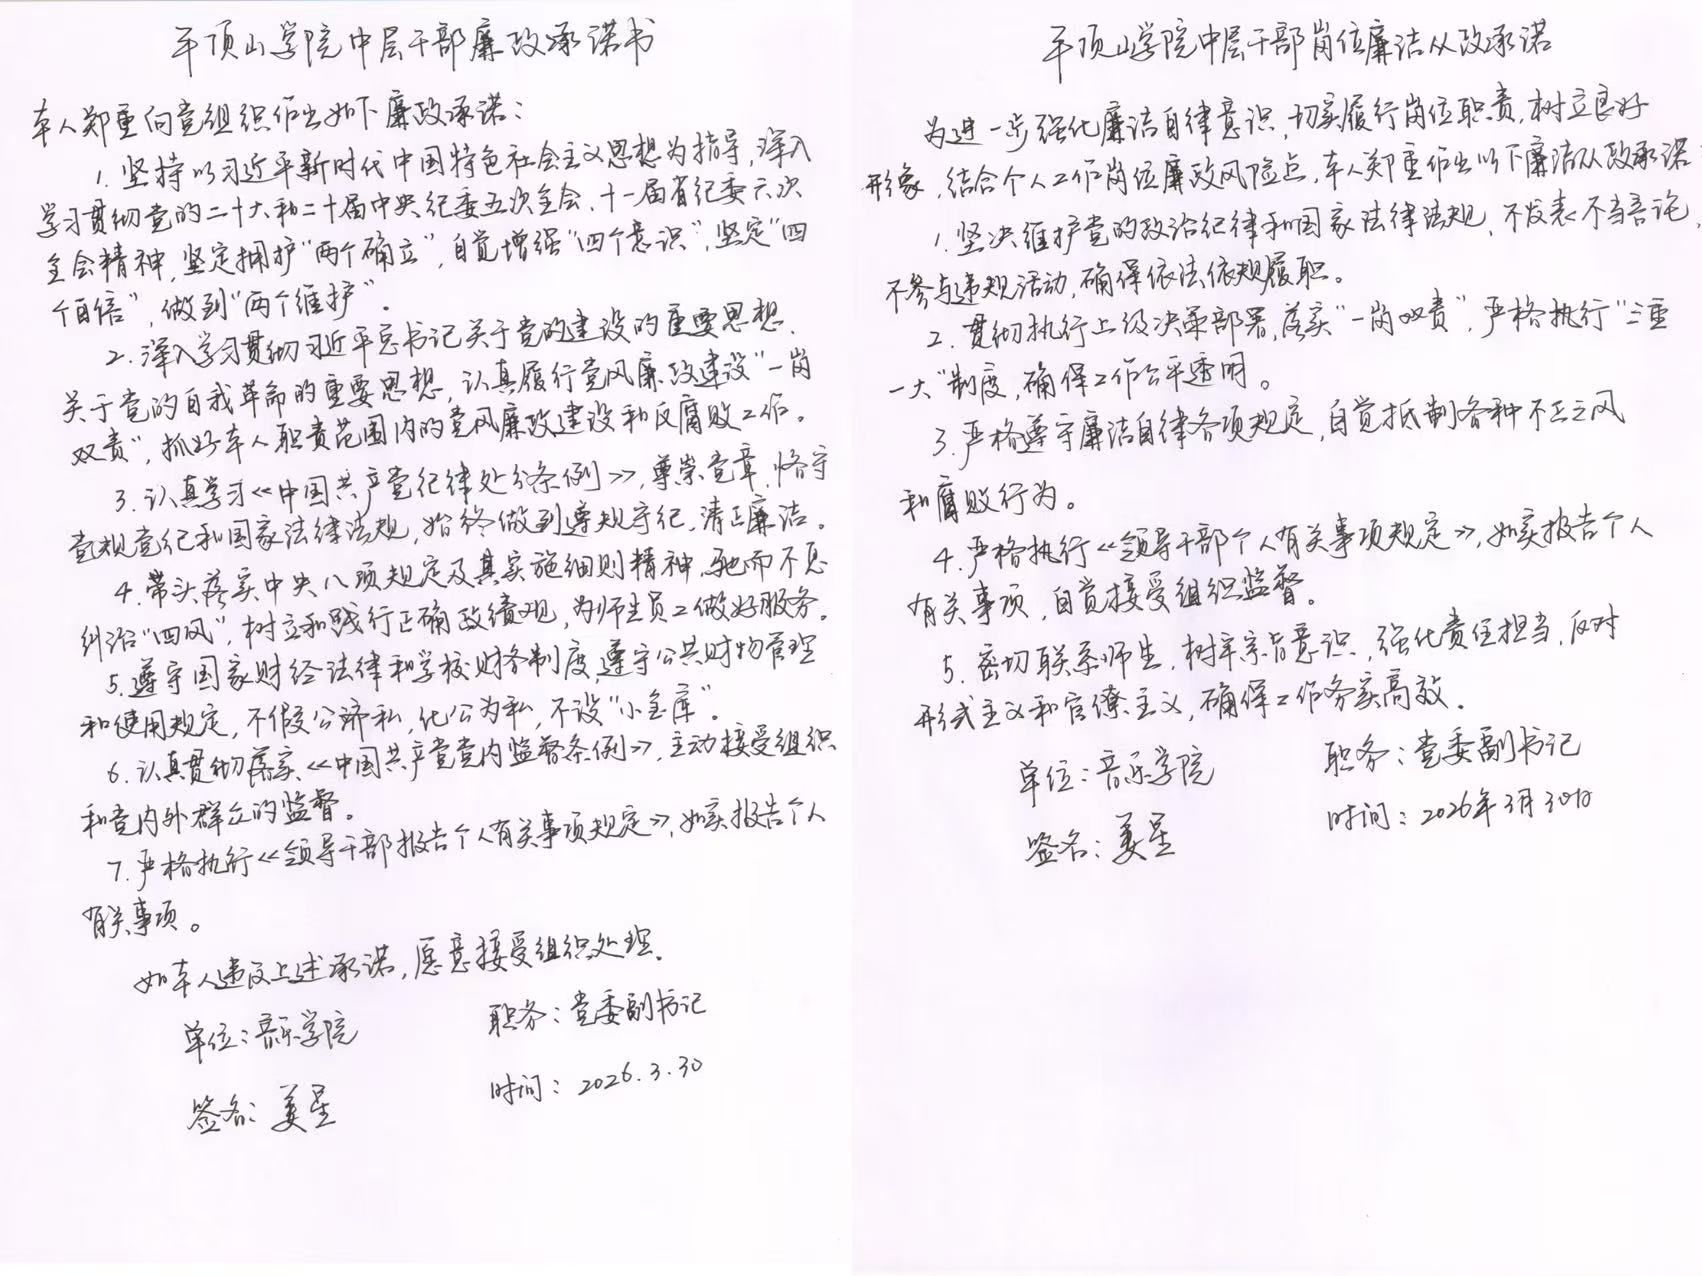 平顶山学院中层干部廉政承诺书
本人郑重向党组织作出如下廉政承诺：
1. 坚持以习近平新时代中国特色社会主义思想为指导，深入
学习贯彻党的二十大和二十届中央纪委五次全会、十一届省纪委六次
全会精神，坚定拥护“两个确立”，自觉增强“四个意识”，坚定“四
个自信”，做到“两个维护”。
2. 深入学习贯彻习近平总书记关于党的建设的重要思想、
关于党的自我革命的重要思想，认真履行党风廉政建设“一岗
双责”，抓好本人职责范围内的党风廉政建设和反腐败工作。
3. 认真学习《中国共产党纪律处分条例》，尊崇党章，恪守
党规党纪和国家法律法规，始终做到遵规守纪，清正廉洁。
4. 带头落实中央八项规定及其实施细则精神，驰而不息
纠治“四风”，树立和践行正确政绩观，为师生员工做好服务。
5. 遵守国家财经法律和学校财务制度，遵守公共财物管理
和使用规定，不假公济私，化公为私，不设“小金库”。
6. 认真贯彻落实《中国共产党党内监督条例》，主动接受组织
和党内外群众的监督。
7. 严格执行《领导干部报告个人有关事项规定》，如实报告个人
有关事项。
如本人违反上述承诺，愿意接受组织处理。
单位：音乐学院
职务：党委副书记
签名：姜星
时间：2026.3.30
平顶山学院中层干部岗位廉洁从政承诺
为进一步强化廉洁自律意识，切实履行岗位职责，树立良好
形象，结合个人工作岗位廉政风险点，本人郑重作出以下廉洁从政承诺
1. 坚决维护党的政治纪律和国家法律法规，不发表不当言论，
不参与违规活动，确保依法依规履职。
2. 贯彻执行上级决策部署，落实“一岗双责”，严格执行“三重
一大”制度，确保工作公平透明。
3. 严格遵守廉洁自律各项规定，自觉抵制各种不正之风
和腐败行为。
4. 严格执行《领导干部个人有关事项规定》，如实报告个人
有关事项，自觉接受组织监督。
5. 密切联系师生，树牢宗旨意识，强化责任担当，反对
形式主义和官僚主义，确保工作务实高效。
单位：音乐学院
职务：党委副书记
签名：姜星
时间：2026年3月30日